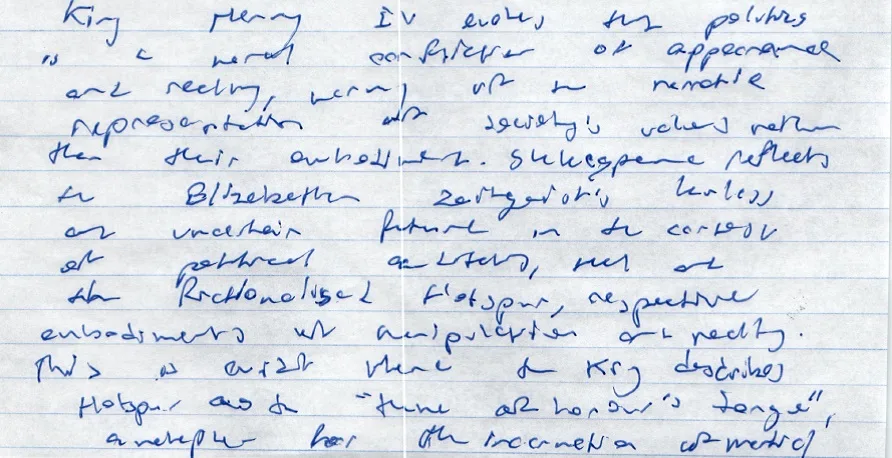 King Henry IV evokes that politics
is a moral confliction of appearance
and reality, wary of the
representation of society's values rather
than their embodiment. Shakespeare reflects
the Elizabethan zeitgeist's heirless
and uncertain future in the context
of political, and
the fictionalised Hotspur, respective
embodiments of manipulation and reality.
This is where the King describes
Hotspur as the "theme of honour's tongue",
a metaphor for the incarnation of